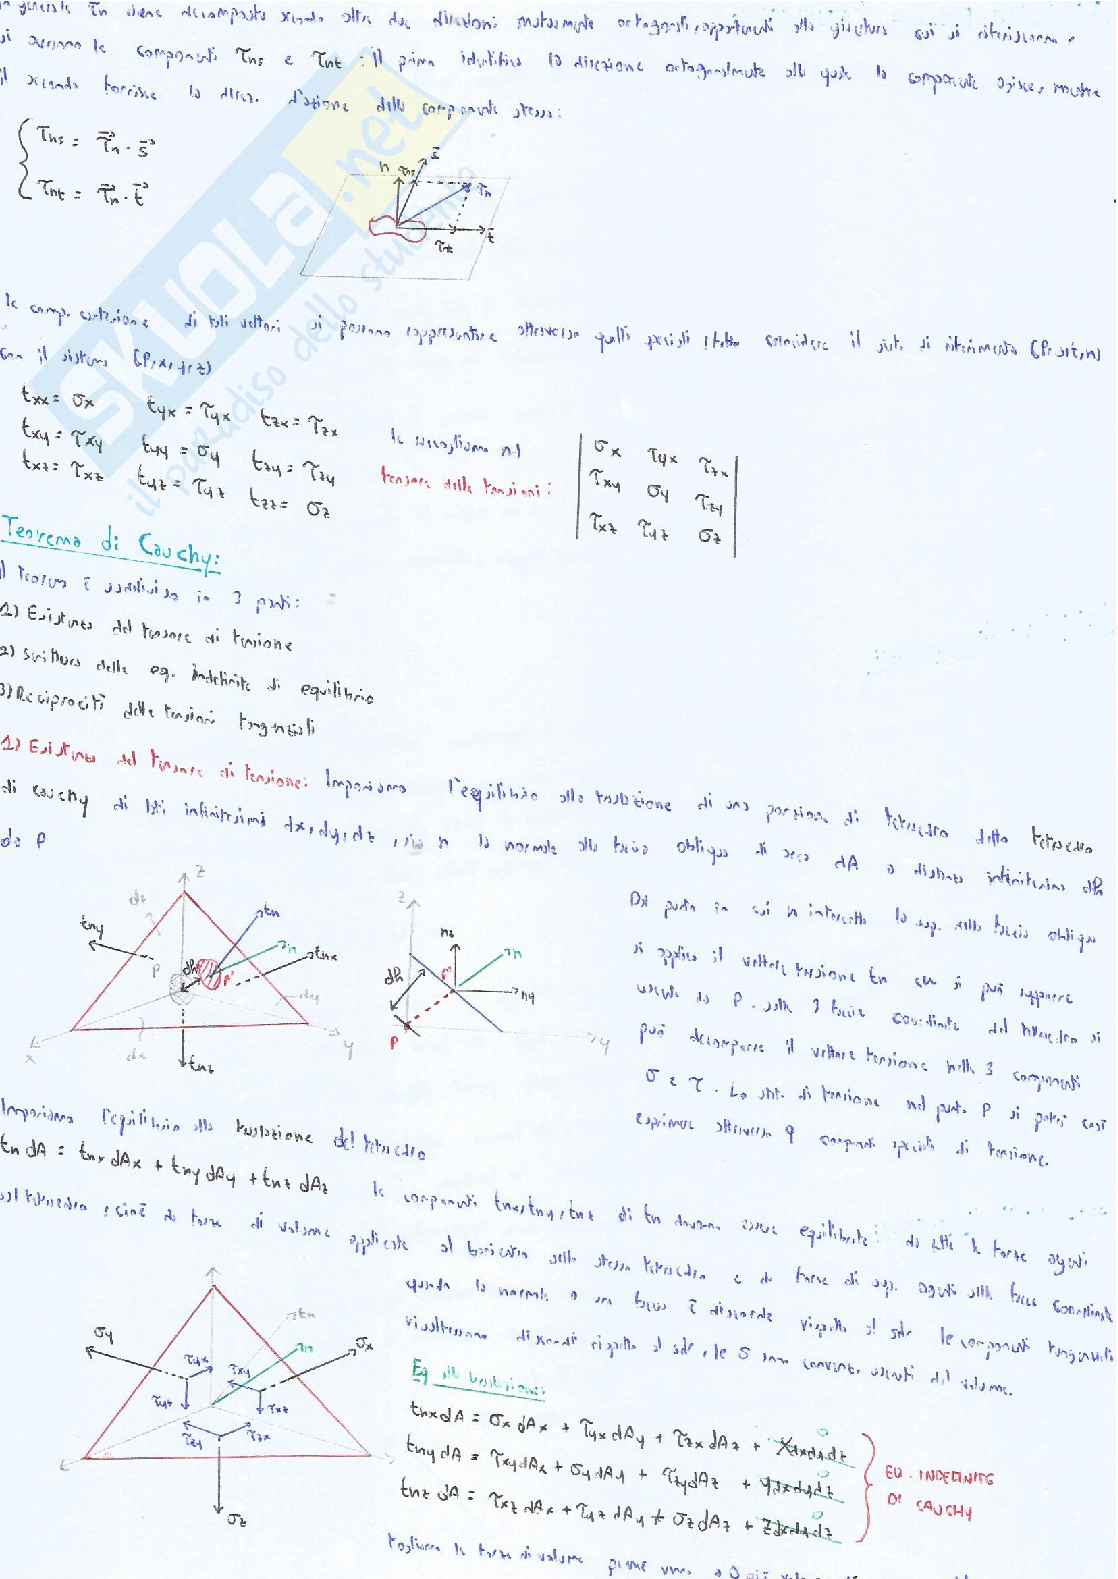 In generale τn viene decomposta secondo altre due direzioni mutuamente ortogonali, opportune alla giacitura cui si riferiscono e
si avranno le componenti τns e τnt : Il primo identifica la direzione ortogonalmente alla quale la componente agisce, mentre
il secondo fornisce la direz. d'azione della componente stessa:
τns = τn · s
τnt = τn · t
n τns s τn
τnt t
le comp. cartesiane di tali vettori si possono rappresentare attraverso quelli speciali facendo coincidere il sist. di riferimento (P,s,t,n)
con il sistema (P,x,y,z)
txx = σx tyx = τyx tzx = τzx
txy = τxy tyy = σy tzy = τzy
txz = τxz tyz = τyz tzz = σz
le raccogliamo nel
tensore delle tensioni:
σx τyx τzx
τxy σy τzy
τxz τyz σz
SKUOLA.net
il paradiso dello studente
Teorema di Cauchy:
Il teorema è suddiviso in 3 parti:
1) Esistenza del tensore di tensione
2) scrittura delle eq. indefinite di equilibrio
3) Reciprocità delle tensioni tangenziali
1) Esistenza del tensore di tensione: Imponiamo l'equilibrio alla traslazione di una porzione di tetraedro detto tetraedro
di Cauchy di lati infinitesimi dx, dy, dz, sia n la normale alla faccia obliqua di area dA a distanza infinitesima dh
da P
z tn n tnx tny dz P dh P' dy x dx y tnz
z nz n dh P' ny P y
Dal punto in cui n interseca la sup. della faccia obliqua
si applica il vettore tensione tn che si può supporre
uscente da P. sulle 3 facce coordinate del tetraedro si
può decomporre il vettore tensione nelle 3 componenti
σ e τ. Lo stato di tensione nel punto P si potrà così
esprimere attraverso 9 componenti speciali di tensione.
Imponiamo l'equilibrio alla traslazione del tetraedro
tn dA = tnx dAx + tny dAy + tnz dAz le componenti tnx, tny, tnz di tn devono essere equilibrate da tutte le forze agenti
sul tetraedro, cioè da forze di volume applicate al baricentro dello stesso tetraedro e da forze di sup. agenti sulle facce coordinate
quando la normale a una faccia è discorde rispetto al sdr le componenti tangenziali
risulteranno discordi rispetto al sdr, le σ sono convenz. uscenti dal volume.
tn n σx σy τyx τxy τyz τxz τzy τzx σz
Eq. alla traslazione:
tnx dA = σx dAx + τyx dAy + τzx dAz + Xdxdydz 0
tny dA = τxy dAx + σy dAy + τzy dAz + Ydxdydz 0
tnz dA = τxz dAx + τyz dAy + σz dAz + Zdxdydz 0
EQ. INDEFINITE
DI CAUCHY
togliamo le forze di volume